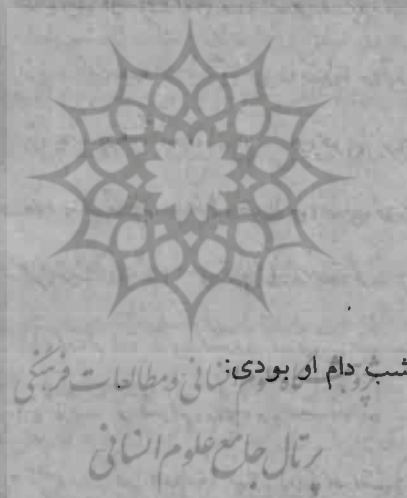 شب دام او بودی:
پژوهشگاه علوم انسانی و مطالعات فرهنگی
پرتال جامع علوم انسانی